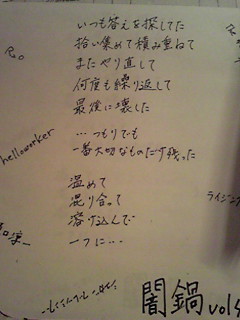 いつも答えを探してた
拾い集めて積み重ねて
またやり直して
何度も繰り返して
最後に壊した
…つもりでも
一番大切なものだけ残った
温めて
混り合って
溶け込んで
一つに…
helloworker
ライジン
闇鍋 vol4